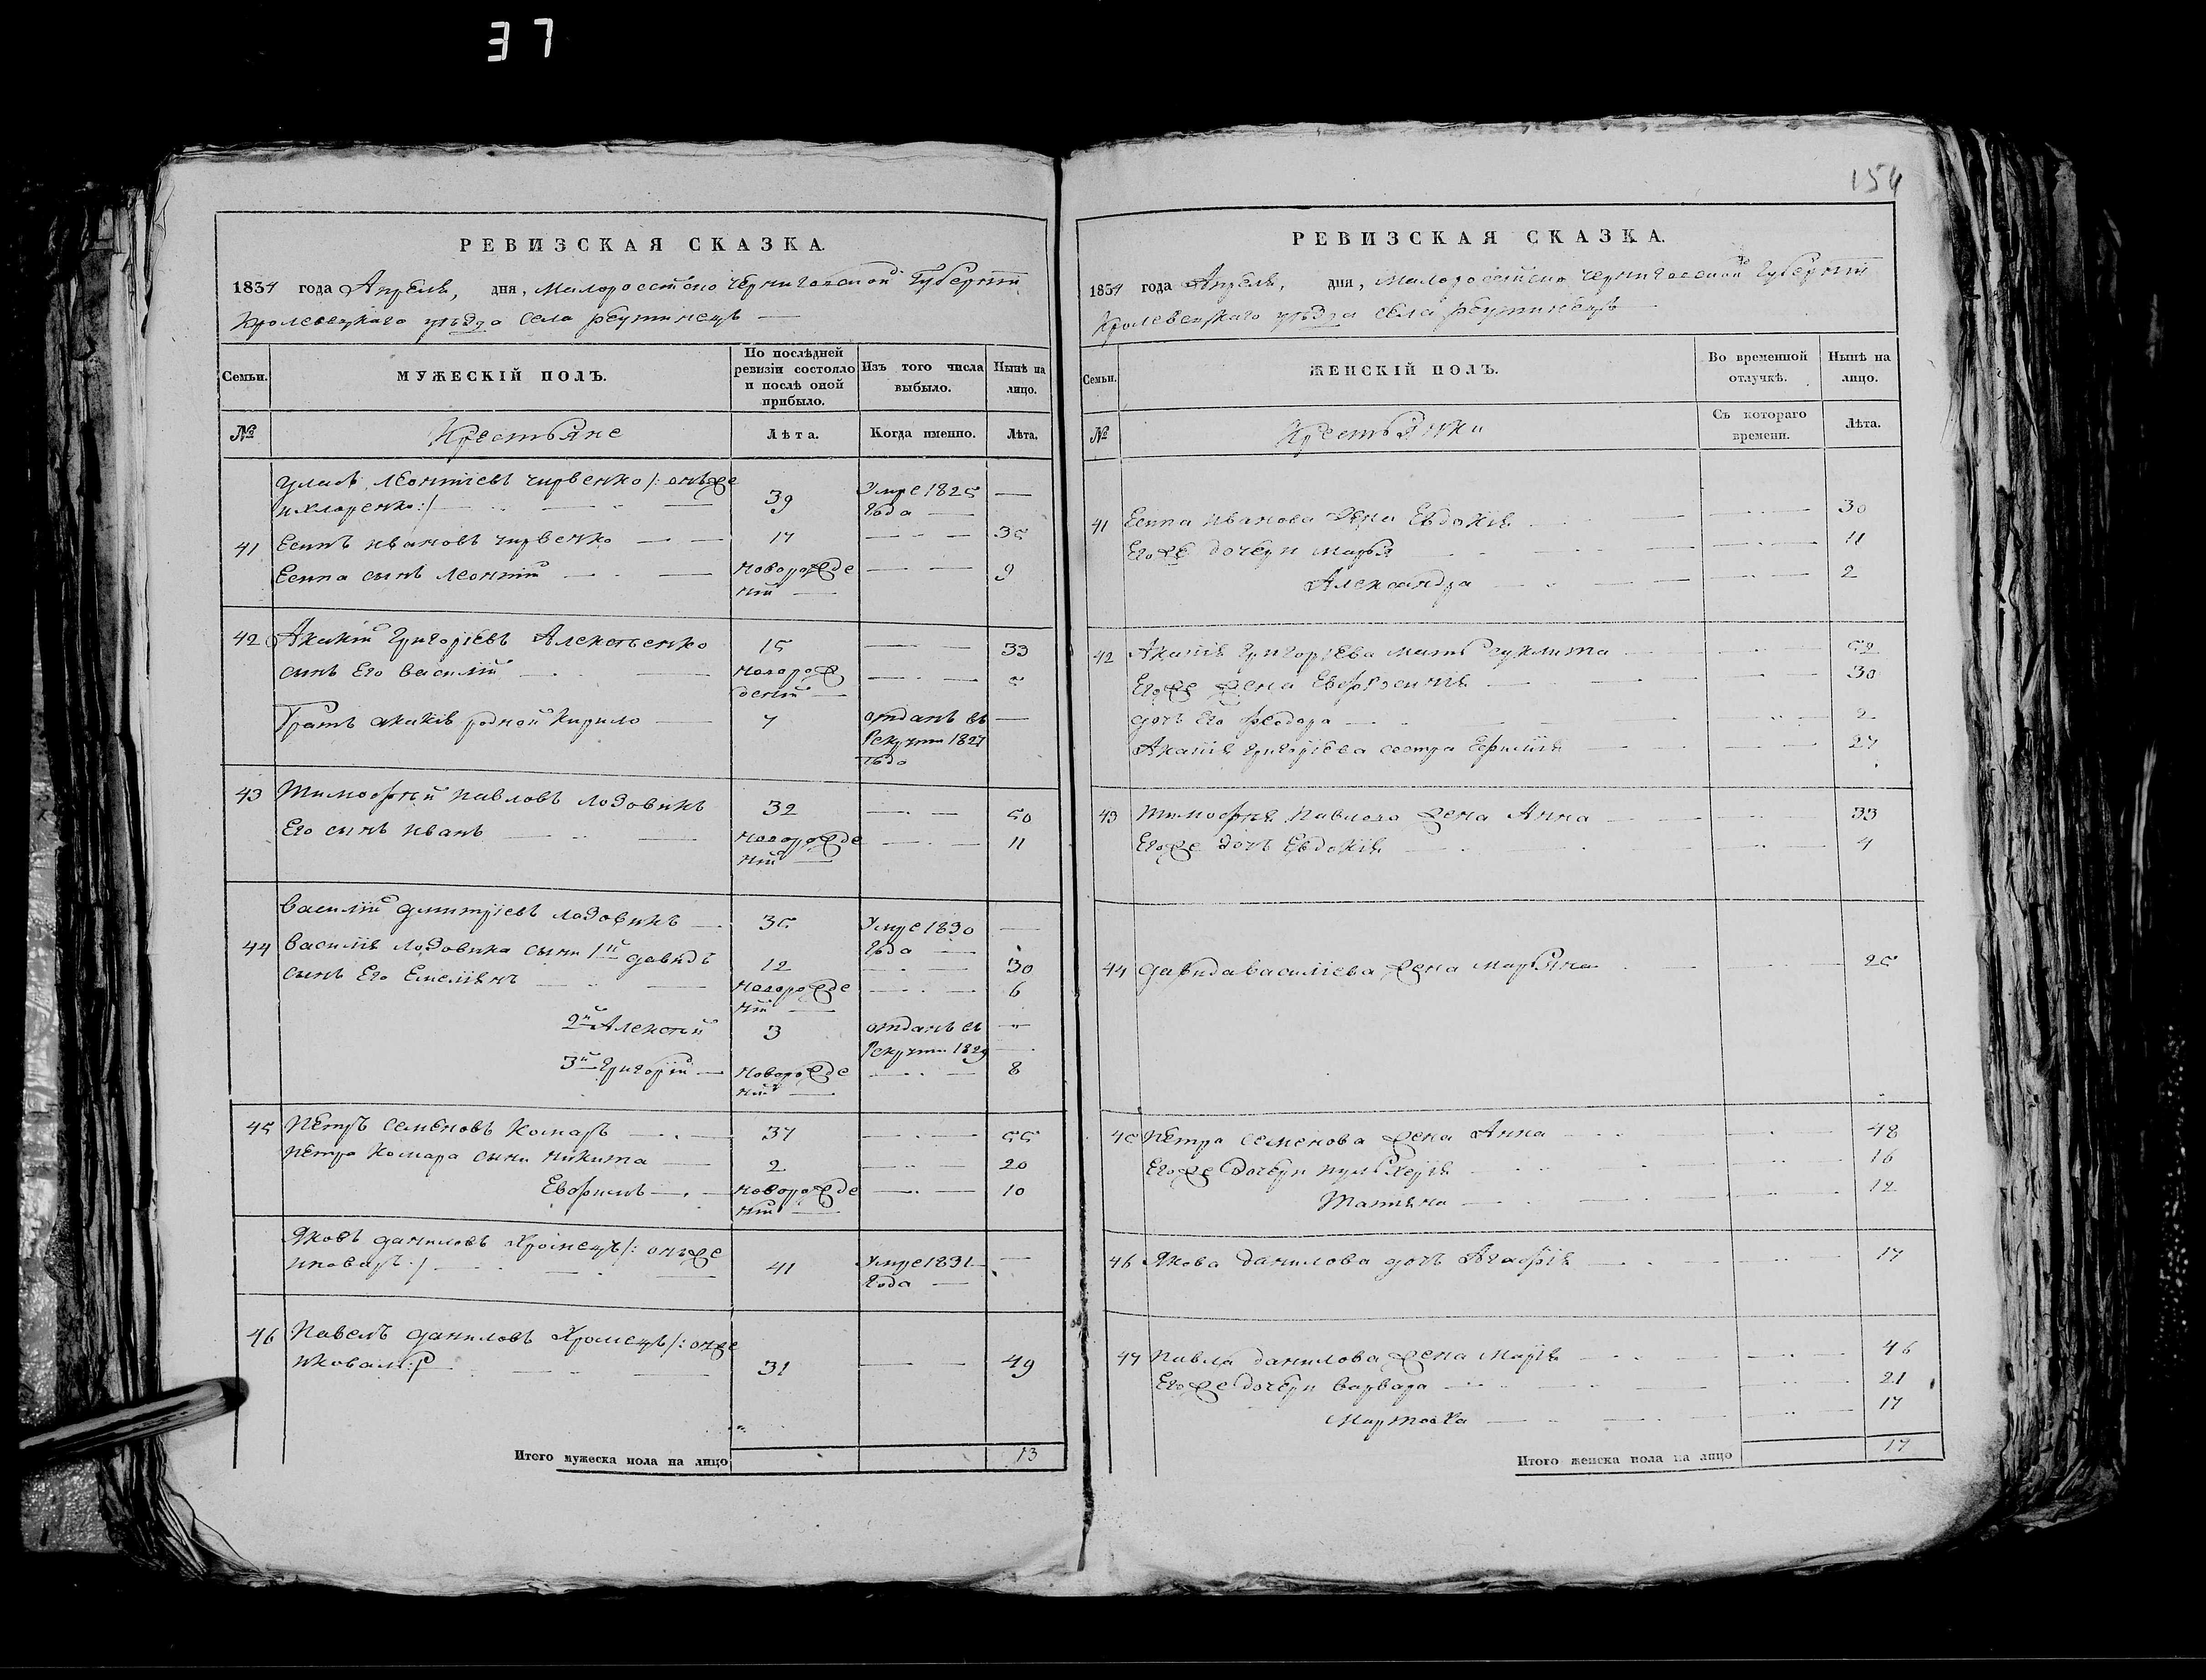 37
154
РЕВИЗСКАЯ СКАЗКА.
1834 года Апреля, дня, Малороссійско Черниговской Губерніи
Кролевецкаго уѣзда села Реутинецъ
Семьи. МУЖЕСКІЙ ПОЛЪ. По послѣдней ревизіи состояло и послѣ оной прибыло. Изъ того числа выбыло. Нынѣ на лицо.
№ Крестьяне Лѣта. Когда именно. Лѣта.
Уласъ Леонтіевъ Чирвенко /: онъже 39 Умре 1825 —
года
41 Есипъ Ивановъ Чирвенко 17 — 35
Есипа сынъ Леонтій новорожде 9
ний
42 Акакій Григоріевъ Алексѣенко 15 — 33
сынъ Его Василій новорож — 5
деній
Братъ Акакія родной Кирило 7 отданъ въ —
Рекруты 1827
года
43 Тимофѣй Павловъ Лозовикъ 32 — 50
Его сынъ Иванъ новорожде — 11
ній
Василій Дмитріевъ Лозовикъ 35 Умре 1830 —
года
44 Василія Лозовика сыни 1й Давидъ 12 — 30
сынъ Его Емеліянъ новорожде — 6
ній
2й Алексѣй 3 отданъ въ —
Рекруты 1829
3й Григорій новорожде — 8
ній
45 Петръ Семеновъ Комаръ 37 — 55
Петра Комара сыни Никита 2 — 20
Евфимъ новорожде — 10
ній
Яковъ Даниловъ Хромецъ /: онъже
41 Умре 1831 —
года
46 Павелъ Даниловъ Хромецъ /: онже
Иковалъ :/ 31 — 49
Итого мужеска пола на лицо 13
РЕВИЗСКАЯ СКАЗКА.
1834 года Апреля, дня, Малороссійско Черниговской Губерніи
Кролевецкаго уѣзда села Реутинецъ
Семьи. ЖЕНСКІЙ ПОЛЪ. Во временной отлучкѣ. Нынѣ на лицо.
№ Крестьянки Съ котораго времени. Лѣта.
41 Есипа Иванова жена Евдокія 30
Егоже дочери Марья 11
Александра 2
42 Акакія Григоріева мать 52
Егоже жена Евфросинія 30
дочь Его Феодора 2
Акакія Григоріева сестра 27
43 Тимофѣя Павлова жена Анна 33
Егоже дочь Евдокія 4
44 Давида Василіева жена Марьяна 25
45 Петра Семенова жена Анна 48
Егоже дочери Пульхерія 16
Татіяна 12
46 Якова Данилова дочь Агафія 17
47 Павла Данилова жена Марія 46
Егоже дочери Варвара 21
17
Итого женска пола на лицо 17